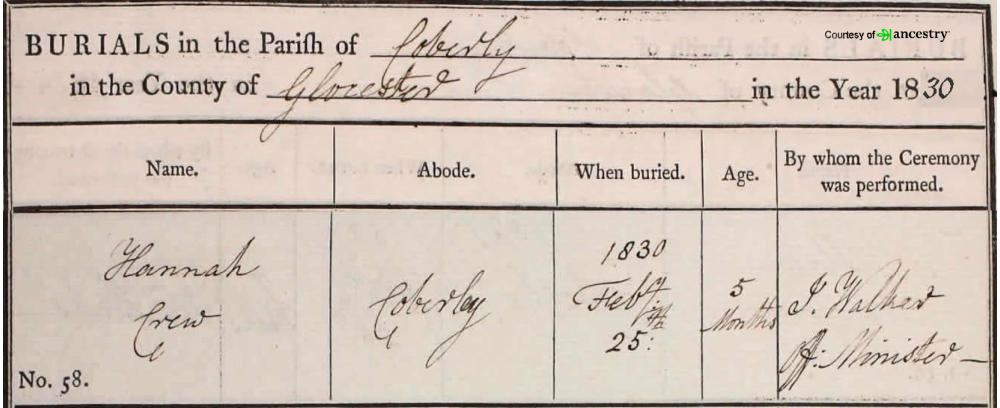 Courtesy of ancestry
BURIALS in the Parish of Coberly
in the County of Glocester in the Year 1830
Name. Abode. When buried. Age. By whom the Ceremony was performed.
Hannah
Crew
No. 58.
Coberley
1830
Feb.y
25th:
5
Months
J. Walker
Off: Minister —